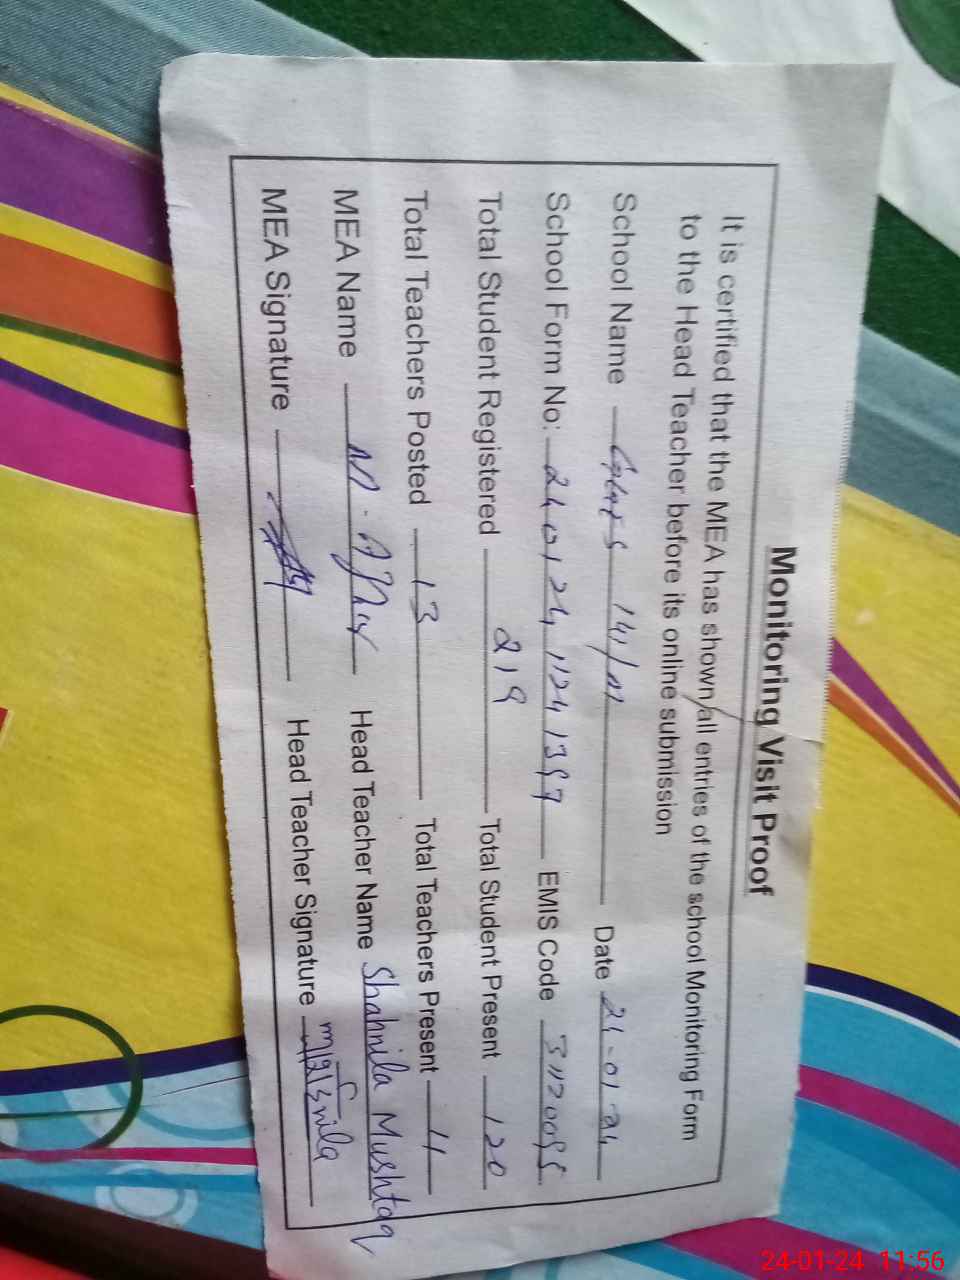 Monitoring Visit Proof
It is certified that the MEA has shown all entries of the school Monitoring Form
to the Head Teacher before its online submission
School Name 141/M Date 24-01-24
School Form No: EMIS Code
Total Student Registered 219 Total Student Present 120
Total Teachers Posted 13 Total Teachers Present 11
MEA Name Head Teacher Name Shahnila Mushtaq
MEA Signature Head Teacher Signature
24-01-24 11:56